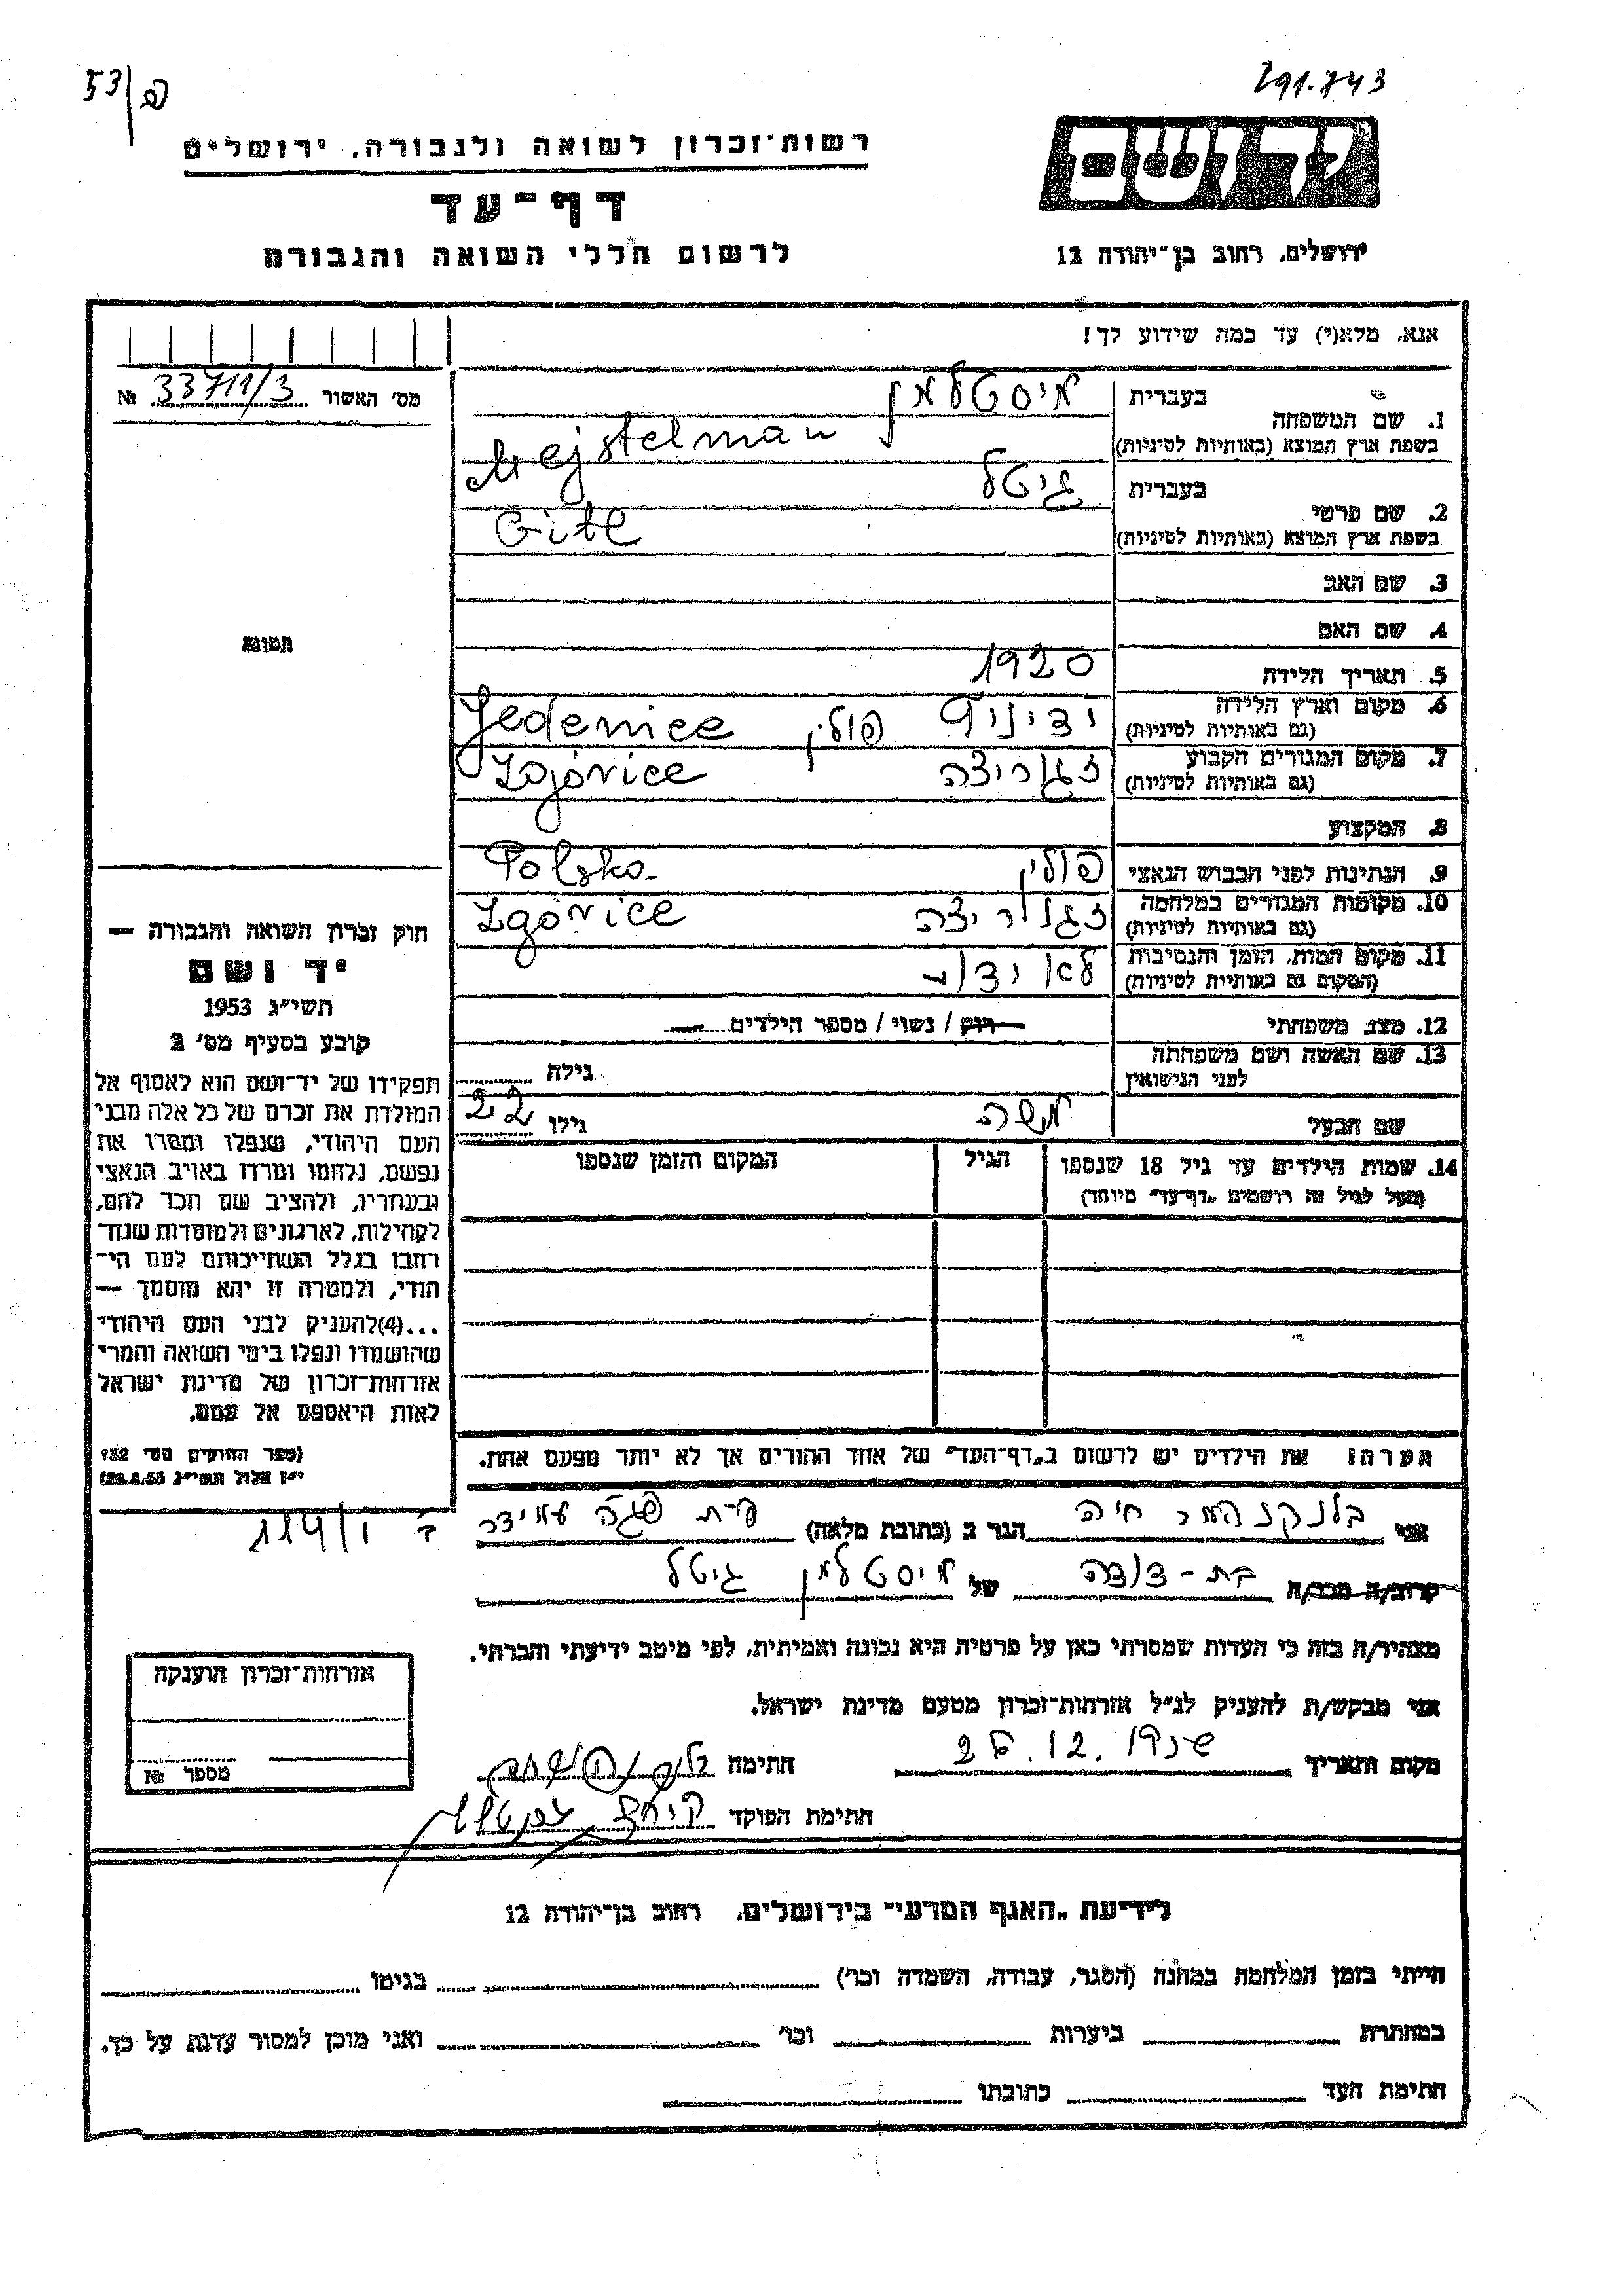 53/פ
291.743
רשות־זכרון לשואה ולגבורה, ירושלים
יד ושם
דף־עד
לרשום חללי השואה והגבורה
ירושלים, רחוב בן־יהודה 12
אנא, מלא(י) עד כמה שידוע לך!
מס׳ האשור 33711/3 №
1. שם המשפחה בעברית מיסטלמן
בשפת ארץ המוצא (באותיות לטיניות) Mejstelman
2. שם פרטי בעברית גיטל
בשפת ארץ המוצא (באותיות לטיניות) Gitl
3. שם האב
4. שם האם
תמונה
5. תאריך הלידה 1920
6. מקום וארץ הלידה (גם באותיות לטיניות) פולין Jedenice
7. מקום המגורים הקבוע (גם באותיות לטיניות) זגוריצה Zgórice
8. המקצוע
9. הנתינות לפני הכבוש הנאצי פולין Polska
10. מקומות המגורים במלחמה (גם באותיות לטיניות) זגוריצה Zgórice
11. מקום המות, הזמן והנסיבות (המקום גם באותיות לטיניות) לא ידוע
12. מצב משפחתי רוק / נשוי / מספר הילדים
13. שם האשה ושם משפחתה לפני הנישואין גילה
שם הבעל משה גילו 22
14. שמות הילדים עד גיל 18 שנספו הגיל המקום והזמן שנספו
(מעל לגיל זה רושמים „דף־עד״ מיוחד)
חוק זכרון השואה והגבורה —
יד ושם
תשי״ג 1953
קובע בסעיף מס׳ 2
תפקידו של יד־ושם הוא לאסוף אל
המולדת את זכרם של כל אלה מבני
העם היהודי, שנפלו ומסרו את
נפשם, נלחמו ומרדו באויב הנאצי
ובעוזריו, ולהציב שם וזכר להם,
לקהילות, לארגונים ולמוסדות שנח־
רבו בגלל השתייכותם לעם הי־
הודי, ולמטרה זו יהא מוסמך —
...(4)להעניק לבני העם היהודי
שהושמדו ונפלו בימי השואה והמרי
אזרחות־זכרון של מדינת ישראל
לאות היאספם אל עמם.
(ספר החוקים מס׳ 132
י״ז אלול תשי״ג 28.8.53)
הערה: את הילדים יש לרשום ב„דף־העד״ של אחד ההורים אך לא יותר מפעם אחת.
114/1
אני בלנקנהמר חיה הגר ב (כתובת מלאה) עמידר
קרוב/ה מכר/ה בת-דודה של מיסטלמן גיטל
מצהיר/ה בזה כי העדות שמסרתי כאן על פרטיה היא נכונה ואמיתית, לפי מיטב ידיעתי והכרתי.
אני מבקש/ת להעניק לנ״ל אזרחות־זכרון מטעם מדינת ישראל.
מקום ותאריך 12.
חתימה
חתימת הפוקד
אזרחות־זכרון הוענקה
מספר №
לידיעת „האגף המדעי״ בירושלים, רחוב בן־יהודה 12
הייתי בזמן המלחמה במחנה (הסגר, עבודה, השמדה וכו׳) בגיטו
במחתרת ביערות וכו׳ ואני מוכן למסור עדות על כך.
חתימת העד כתובתו